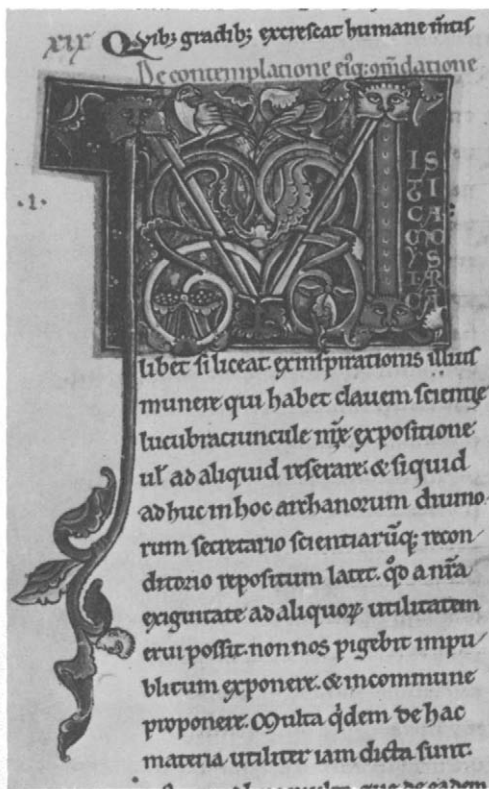 XIX Qvib; gradib; excrescat humane m̄tis
De contemplatione ei9q; ōm̄datione
.1.
M
IS
TI
CA
MO
YS
libet si liceat ex inspirationis illius
munere qui habet clauem scientie
lucubraciuncule nr̄e expositione
ul̄ ad aliquid reserare. & siquid
adhuc in hoc archanorum diuino-
rum secretario scientiarūq; recon-
ditorio repositum latet. qd̊ a nr̄a
exiguitate ad aliquoꝝ utilitatem
erui possit. non nos pigebit impu-
blicum exponere. & incommune
proponere. Multa qi̇dem de hac
materia utiliter iam dicta sunt.